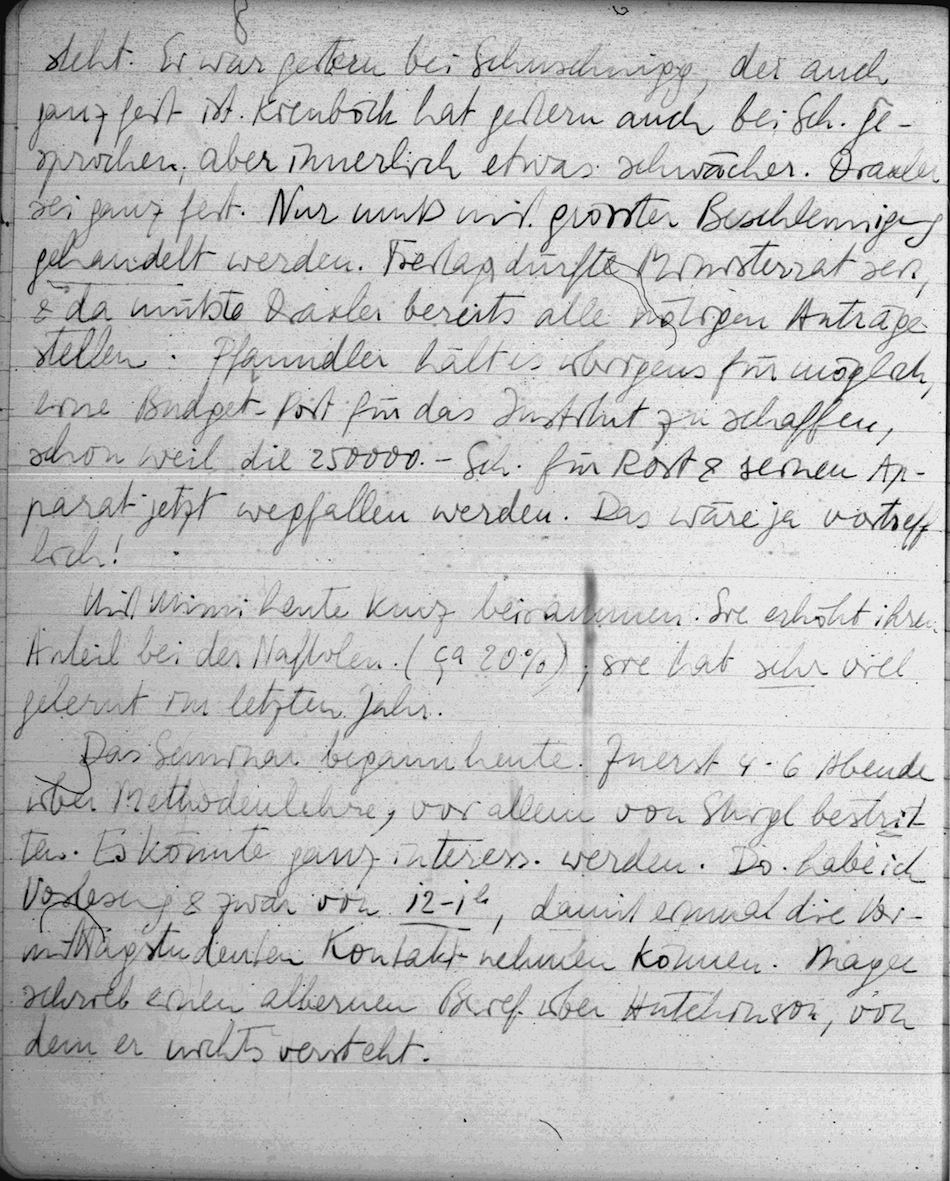 steht. Er war gestern bei Schuschnigg, der auch
ganz fest ist. Kienböck hat gestern auch bei Sch. ge-
sprochen, aber innerlich etwas schwächer. Draxler
sei ganz fest. Nur muss mit grösster Beschleunigung
gehandelt werden. Freitag dürfte Ministerrat sein,
& da müsste Draxler bereits alle nötigen Anträge
stellen. Pfaundler hält es übrigens für möglich,
eine Budget-Post für das Institut zu schaffen,
schon weil die 250000.– Sch. für Rost & seinen Ap-
parat jetzt wegfallen werden. Das wäre ja vortreff
lich!
Mit Mimi heute kurz beisammen. Sie erhöht ihren
Anteil bei der Naftolen. (ca 20%), sie hat sehr viel
gelernt im letzten Jahr.
Das Seminar begann heute. Zuerst 4-6 Abende
über Methodenlehre, vor allem von bestrit
ten. Es könnte ganz interess. werden. Do. habe ich
Vorlesung & zwar von 12-1h, damit einmal die Vor-
mittagstudenten Kontakt nehmen können.
schrieb einen albernen Brief über Hutchinson, von
dem er nichts versteht.